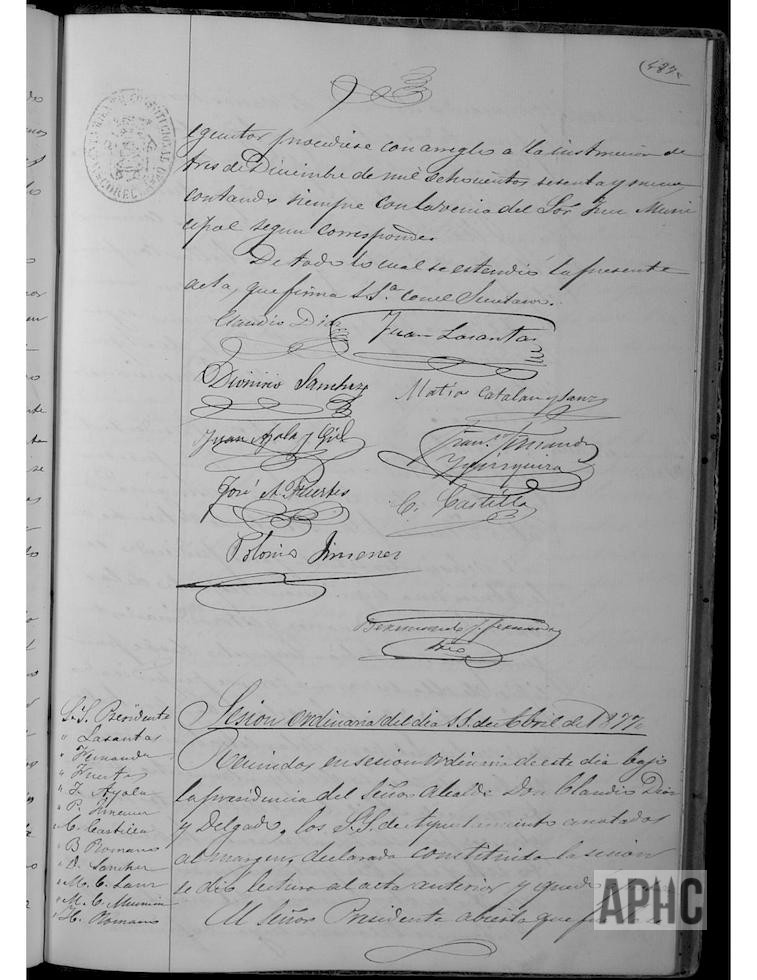 487
procediese con arreglo a la instruccion de
tres de Diciembre de mil ochocientos sesenta y nueve
contando siempre con la venia del Sor Juez Muni
cipal segun corresponde.
De todo lo cual se estendió la presente
acta, que firma S.Sª con el Secretario.
Claudio Diaz
Juan Lasantas
Dionisio Sanchez
Matias Catalan y Sanz
Juan Ayala y Gil
Franco Fernandez
José A. Fuertes
C. Castilla
Polonio Jimenez
Bermundo J. Fernandez
Srio
S.S. Presidente
" Lasantas
" Fernandez
" Fuertes
" J. Ayala
" P. Jimenez
" C. Castilla
" B Romano
" D. Sanchez
" M. C. Sanz
" M. C.
" H. Romano
Sesion ordinaria del dia 11 de Abril de 1877
Reunidos en sesion ordinaria de este dia bajo
la presidencia del Señor Alcalde Don Claudio Diaz
y Delgado, los S.S. de Ayuntamiento anotados
al margen, declarada constituida la sesion
se dió lectura al acta anterior y quedó
El Señor Presidente abierta que
APHC